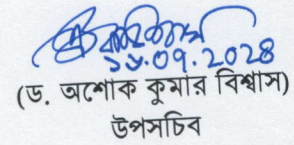 ১৮.০৭.২০২৪
(ড. অশোক কুমার বিশ্বাস)
উপসচিব